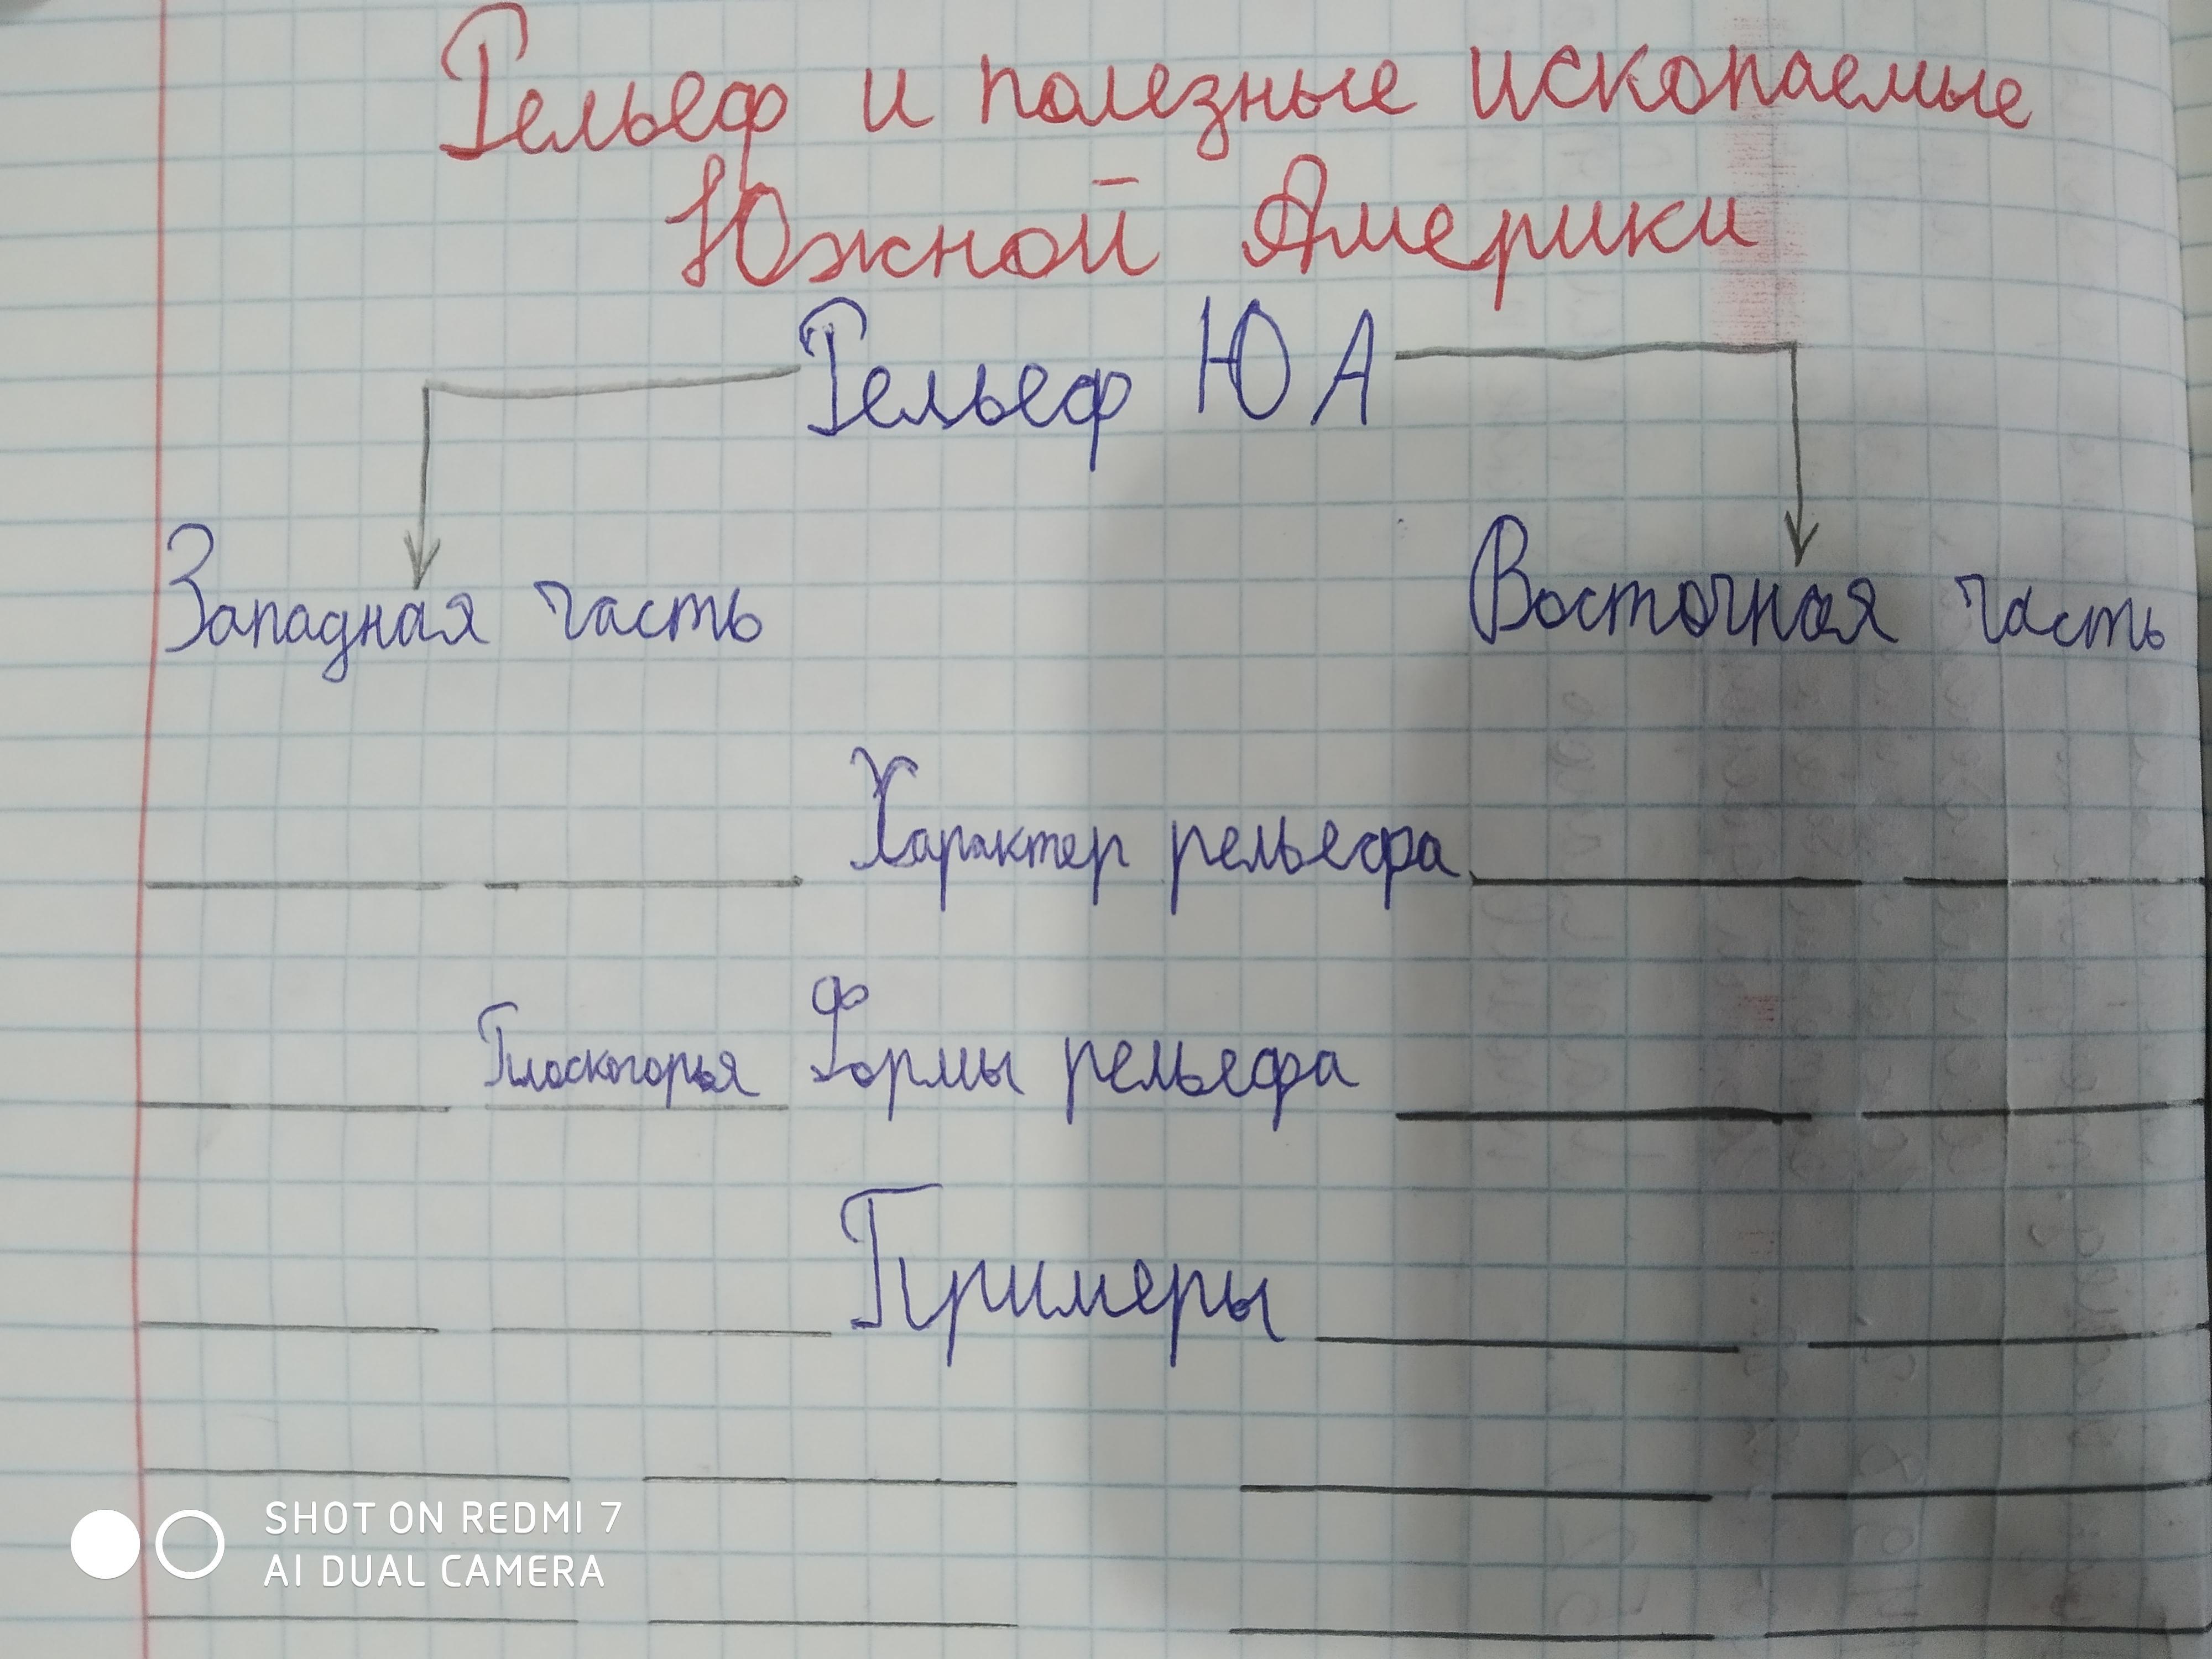 Рельеф и полезные ископаемые
Южной Америки
Рельеф ЮА
Западная часть Восточная часть
Характер рельефа
Плоскогорья Формы рельефа
Примеры
SHOT ON REDMI 7
AI DUAL CAMERA